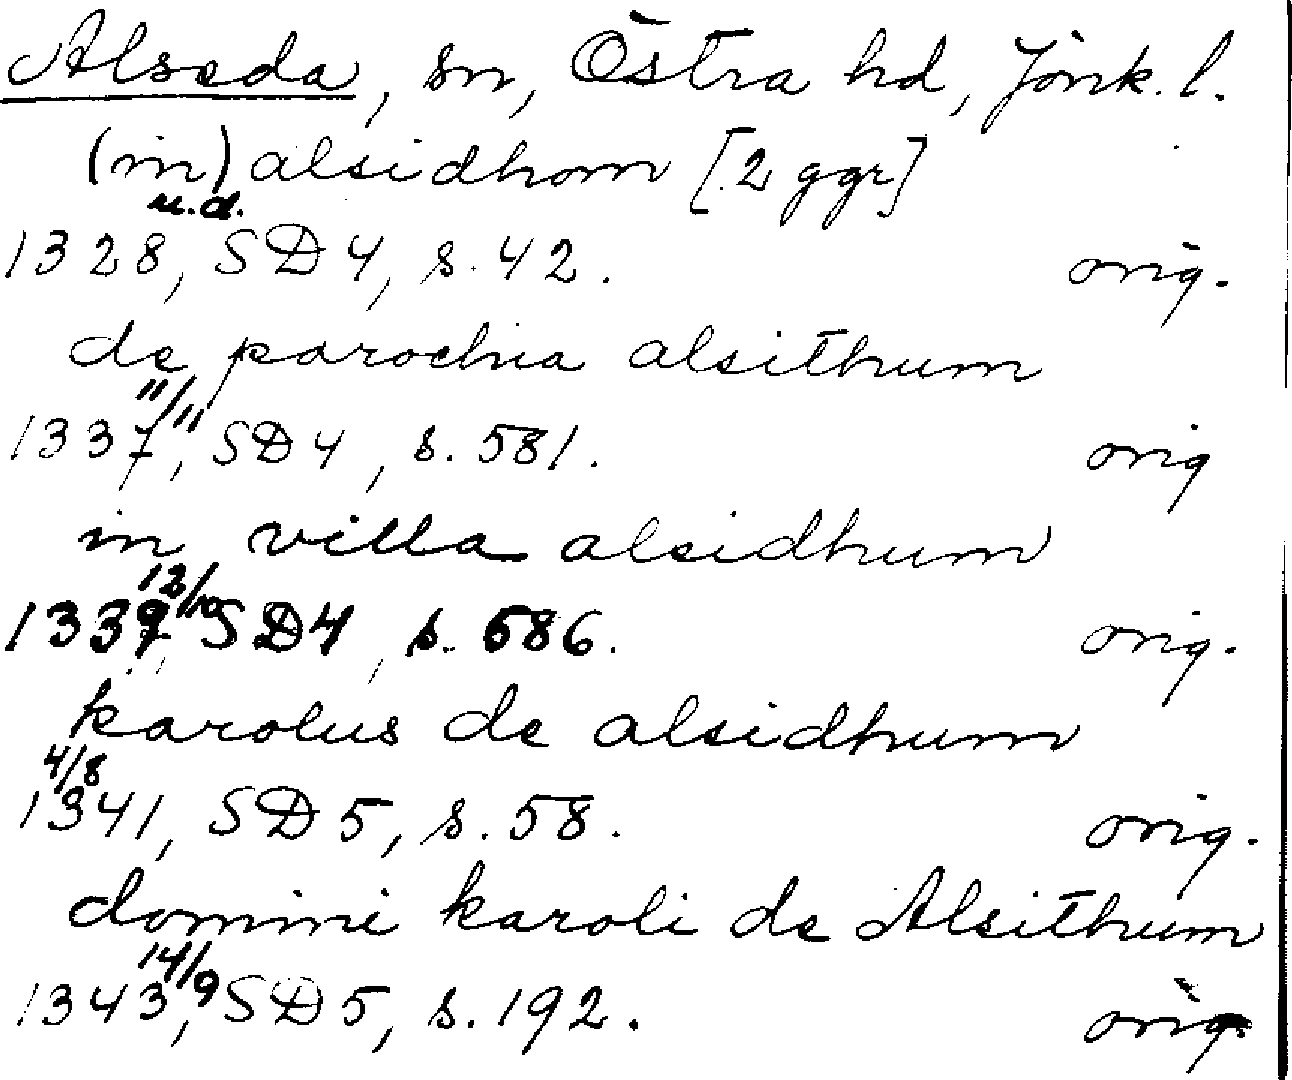 Alseda, sn, Östra hd, Jönk. l.
(in) alsidhom [2 ggr]
u.d.
1328, SD 4, s. 42. orig.
de parochia alsithum
11/11
1337, SD 4, s. 581. orig
in villa alsidhum
12/10
SD 4, s. 586. orig.
karolus de alsidhum
4/8
1341, SD 5, s. 58. orig.
domini karoli de Alsithum
14/9
1343, SD 5, s. 192. orig.